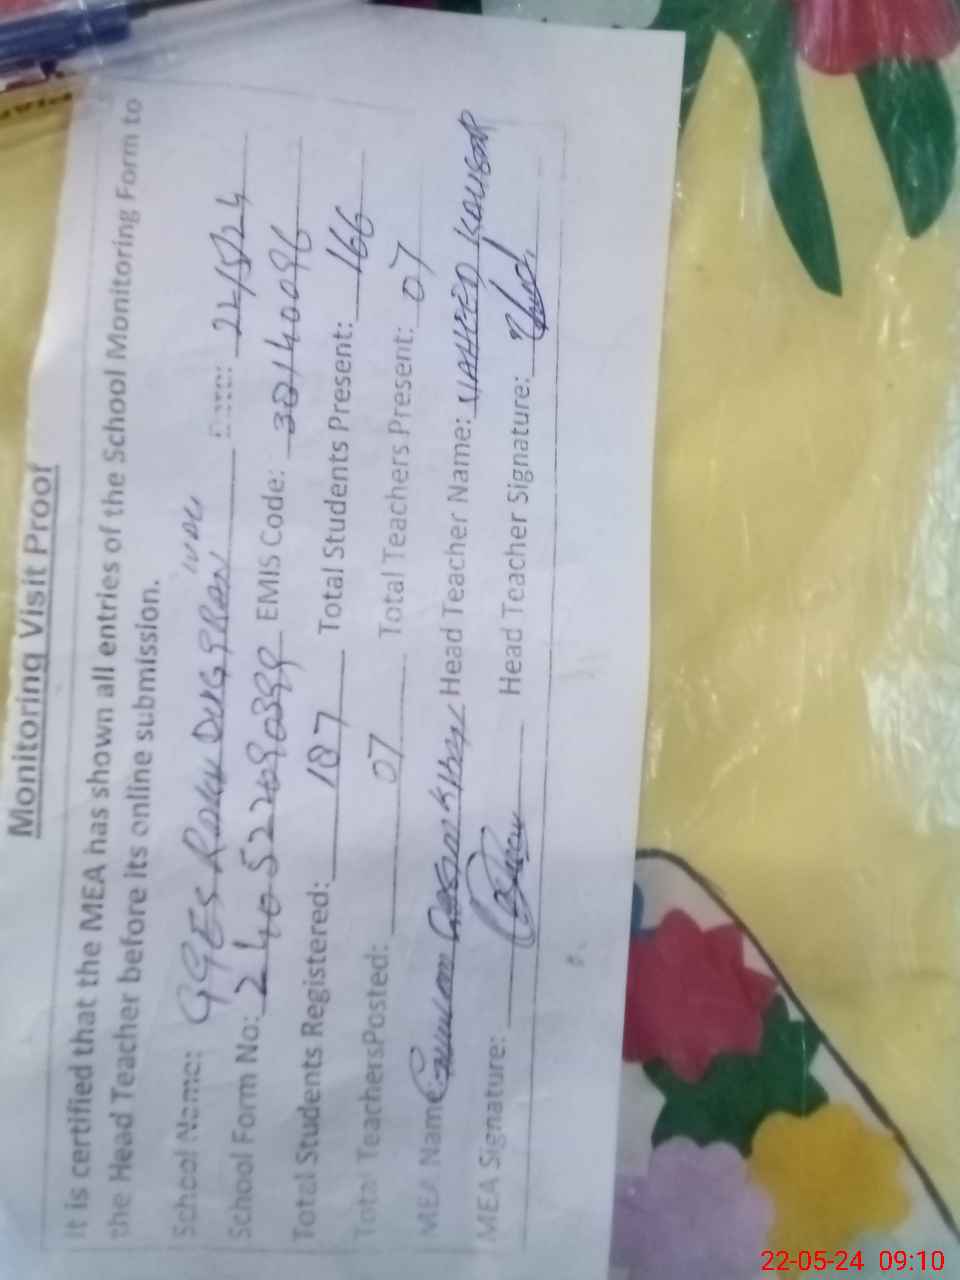 Monitoring Visit Proof
It is certified that the MEA has shown all entries of the School Monitoring Form to
the Head Teacher before its online submission.
School Name: GGES Date: 22/5/24
School Form No: EMIS Code: 38140096
Total Students Registered: 187 Total Students Present: 166
Total TeachersPosted: 07 Total Teachers Present: 07
MEA Name Head Teacher Name: KOUSAR
MEA Signature: Head Teacher Signature:
22-05-24 09:10